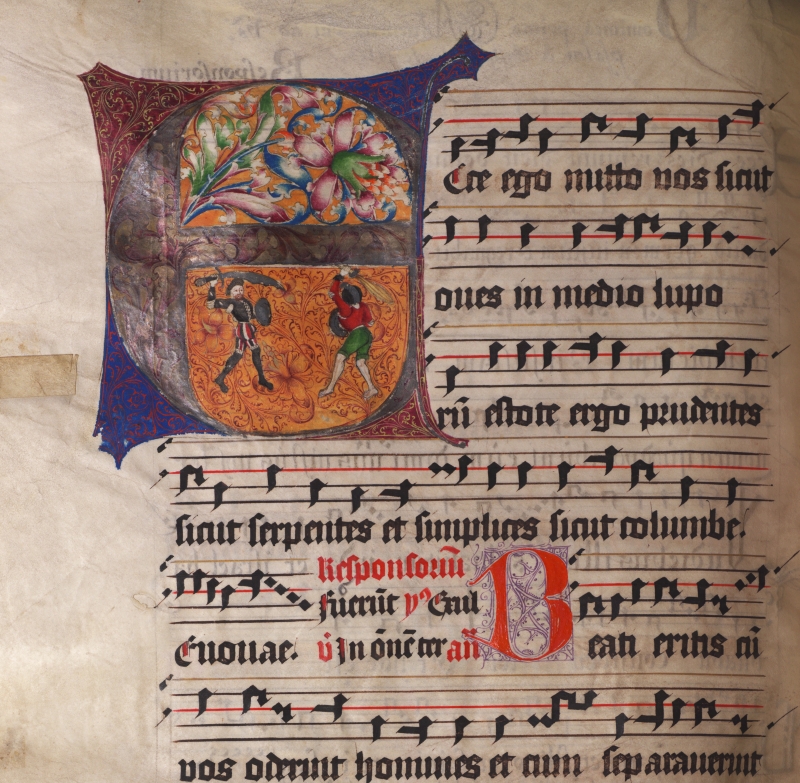 Ecce ego mitto vos sicut
oues in medio lupo
rū estote ergo prudentes
sicut serpentes et simplices sicut columbe.
Responsoriū
Fuerūt
Euouae. v̄ In ōnē ter añ Beati eritis cū
vos oderint homines et cum separauerint